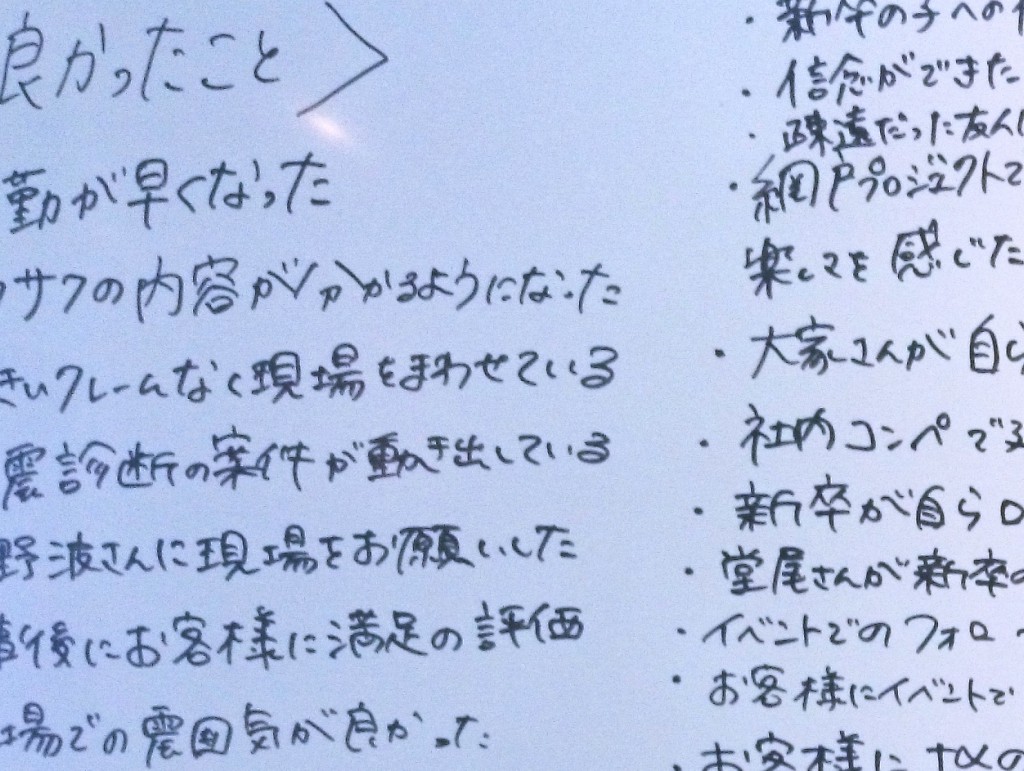 良かったこと＞
勤が早くなった
サクの内容が分かるようになった
きいクレームなく現場をまわせている
震診断の案件が動き出している
野波さんに現場をお願いした
事後にお客様に満足の評価
場での雰囲気が良かった
・新卒の子への
・信念ができた
・疎遠だった友人
・網戸プロジェクトで
楽しさを感じた
・大家さんが自ら
・社内コンペで
・新卒が自ら
・堂尾さんが新卒の
・イベントでのフォロー
・お客様にイベントで
・お客様に